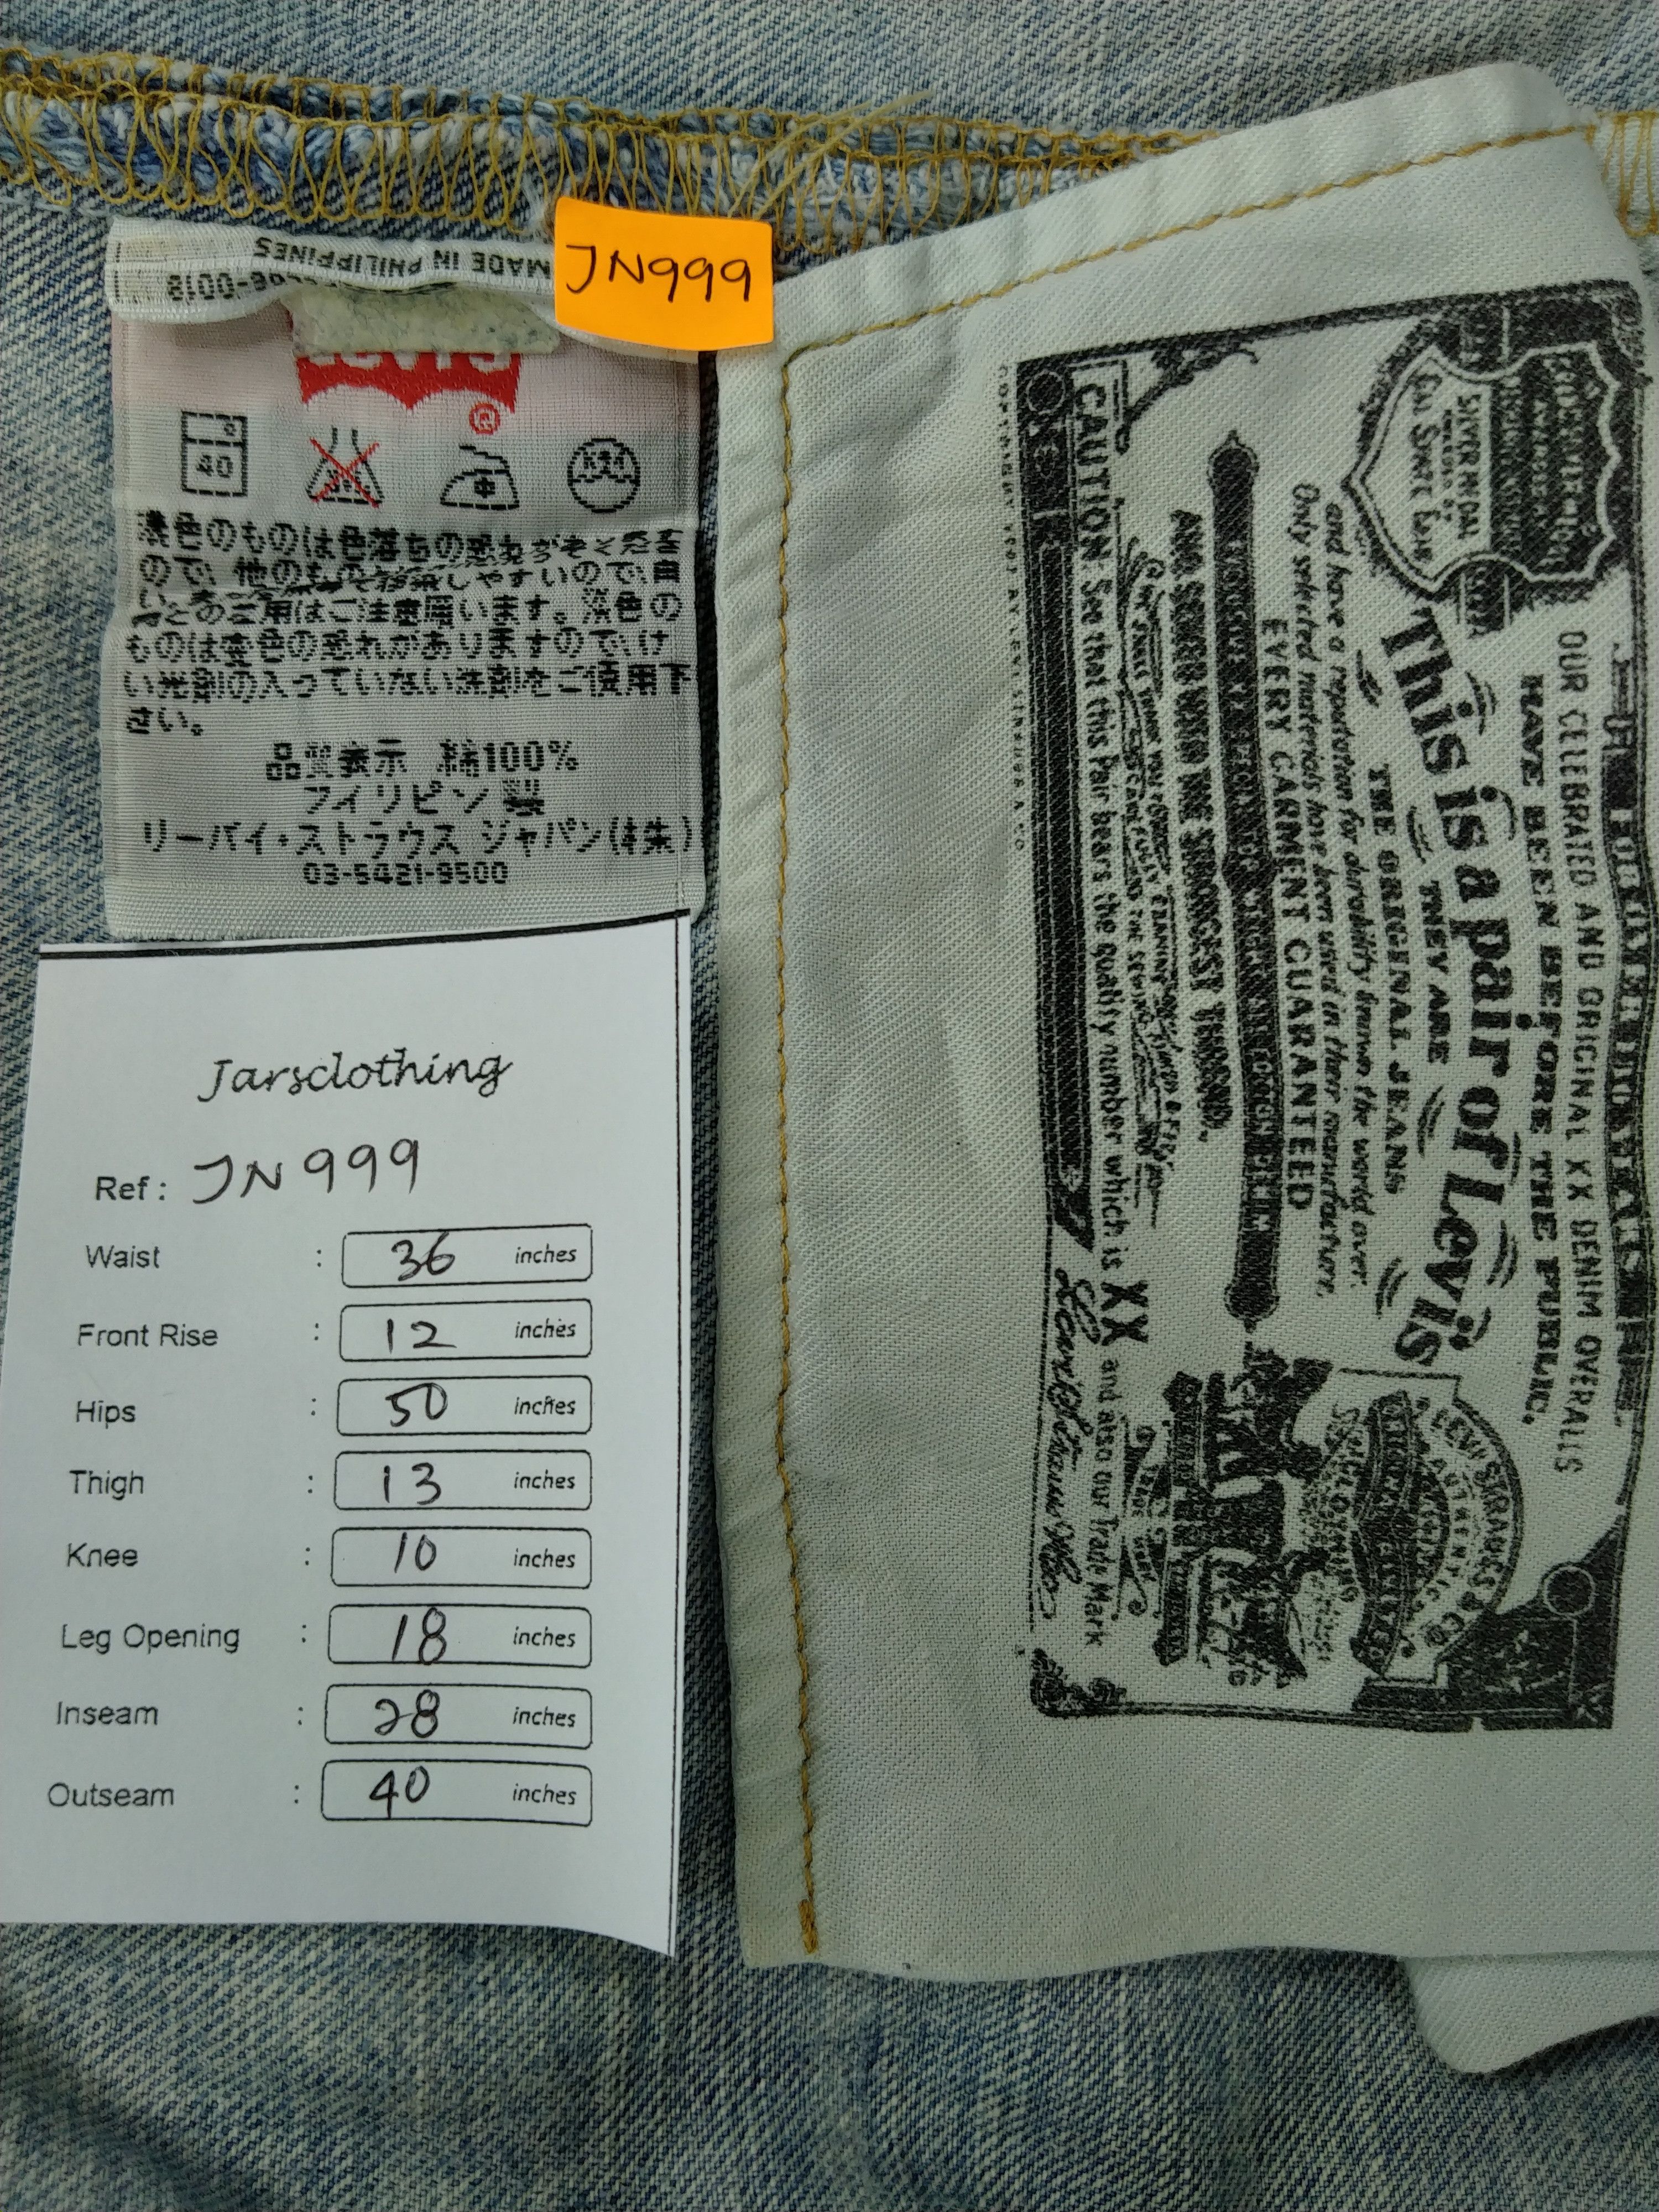 MADE IN PHILIPPINES
JN999
Levi's
®
40
濃色のものは色落ちの恐れが
ので、他のものに移染しやすいので、白
いものとのご着用はご注意願います。淡色の
ものは変色の恐れがありますので、け
い光剤の入っていない洗剤をご使用下
さい。
品質表示 綿100%
フィリピン製
リーバイ・ストラウス ジャパン(株)
03-5421-9500
Jarsclothing
Ref : JN999
Waist : 36 inches
Front Rise : 12 inches
Hips : 50 inches
Thigh : 13 inches
Knee : 10 inches
Leg Opening : 18 inches
Inseam : 28 inches
Outseam : 40 inches
OUR CELEBRATED AND ORIGINAL XX DENIM OVERALLS
HAVE BEEN BEFORE THE PUBLIC.
This is a pair of Levi's
THEY ARE
THE ORIGINAL JEANS
and have a reputation for durability known the world over.
Only selected materials have been used in their manufacture.
EVERY GARMENT GUARANTEED
AND SEWED WITH THE STRONGEST THREAD.
CAUTION See that this Pair bears the quality number which is XX and also our Trade Mark
Levi Strauss & Co
SILVER MEDAL
CAL STATE FAIR
LEVI STRAUSS & CO
AUTHENTIC